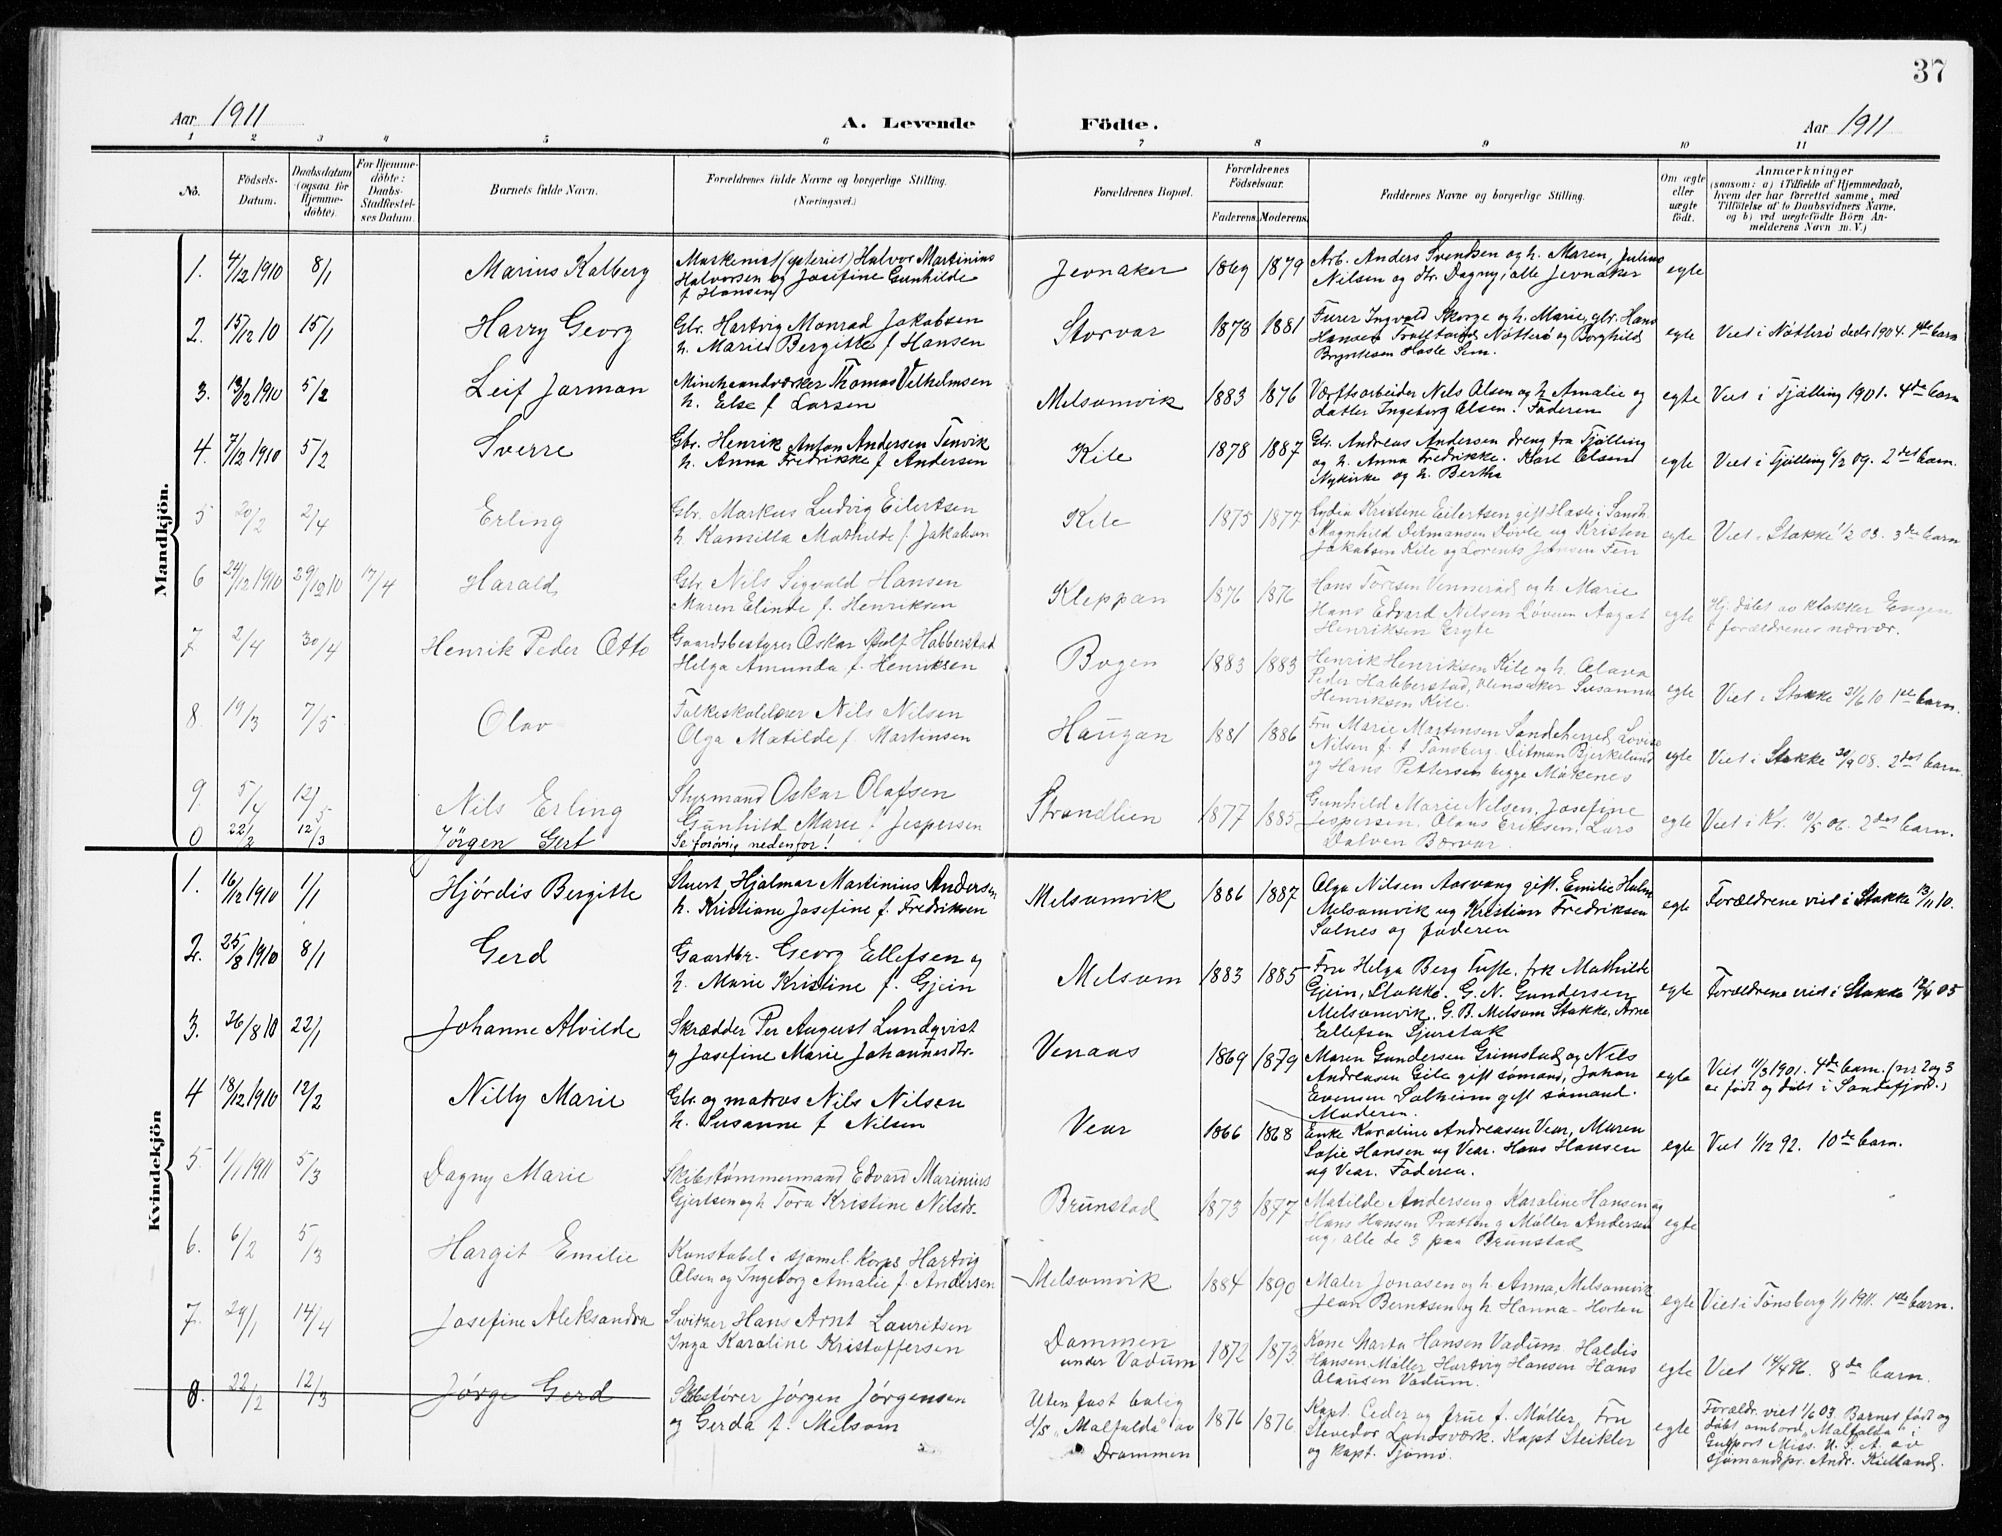 37
Aar 1911
A. Levende Födte.
Aar 1911
1 2 3 4 5 6 7 8 9 10 11
No.
Födsels-Datum.
Daabsdatum (ogsaa for Hjemmedöbte).
For Hjemmedöbte: Daabs-Stadfæstelses Datum.
Barnets fulde Navn.
Forældrenes fulde Navne og borgerlige Stilling. (Næringsvei.)
Forældrenes Bopæl.
Forældrenes Födselsaar.
Faderens. Moderens.
Faddernes Navne og borgerlige Stilling.
Om ægte eller uægte födt.
Anmærkninger
(saasom: a) i Tilfælde af Hjemmedaab,
hvem der har forrettet samme, med
Tilföielse af to Daabsvidners Navne,
og b) ved uægtefödte Börn An-
melderens Navn m. V.)
Mandkjön.
1. 4/12 1910 8/1 Marius Kalberg
Halvor Martinius
Halvorsen og Josefine Gunhilde
f Hansen
Jevnaker 1869 1879
Arb. Anders Svendsen og h. Maren, Julius
Nilsen og dtr. Dagny, alle Jevnaker
egte
2. 15/12 10 15/1 Harry Georg
Gbr. Hartvig Monrad Jakobsen
h. Marie Bergitte f Hansen
Storvar 1878 1881
Furer Ingvald Skorge og h. Marie, gbr. Hans
Hansen Nötterö og Borghild
Hasle Sem.
egte Viet i Nötterö 1904. 1ste barn
3. 13/12 1910 5/2 Leif Jarman
Thomas Vilhelmsen
h. Else f Larsen
Melsomvik 1883 1876
Værftsarbeider Nils Olsen og h Amalie og
datter Ingeborg Olsen. Faderen
egte Viet i Tjölling 1901. 4de barn
4. 7/12 1910 5/2 Sverre
Gbr. Henrik Anton Andersen Tenvik
h. Anna Fredrikke f Andersen
Kile 1878 1887
Gbr. Andreas Andersen dreng fra Tjölling
og h. Anna Fredrikke. Karl Olsen
Nykirke og h. Bertha
egte Viet i Tjölling 6/2 09. 2det barn.
5 20/2 2/4 Erling
Gbr. Markus Ludvig Eilertsen
h. Kamilla Mathilde f. Jakobsen
Kile 1875 1877
Lydia Kristine Eilertsen gift Hasle i Sandh.
Magnhild Ditmansen Døvle og Kristen
Jakobsen Kile og Lorents Jensen Fen
egte Viet i Stokke 1/2 03. 3de barn
6 24/12 1910 29/12 10 17/4 Harald
Gbr. Nils Sigvald Hansen
Maren Elinde f. Henriksen
Kleppan 1876 1876
Hans Toresen Vennerød og h Marie
Hans Edvard Nilsen Løveim Aagot
Henriksen Gryte
egte Hj. döbt av klokker Engen
i forældrenes nærvær.
7 2/4 30/4 Henrik Peder Otto
Gaardsbestyrer Oskar Adolf Habberstad
Helga Amunda f. Henriksen
Bogen 1883 1883
Henrik Henriksen Kile og h. Olava
Peder Habberstad, Ulensaker Susanna
Henriksen Kile.
egte Viet i Stokke 21/6 10 1ste barn.
8 19/3 7/5 Olav
Folkeskolelærer Nils Nilsen
Olga Matilde f. Martinsen
Haugan 1881 1886
Fru Marie Martinsen Sandeherred, Lovise
Nilsen f. t Tønsberg. Ditman Bjerkelund
og Hans Pettersen begge Måkenes
egte Viet i Stokke 20/9 08. 2det barn.
9. 5/4 12/5 Nils Erling
Styrmand Oskar Olafsen
Gunhild Marie f. Jespersen
Strandlien 1877 1885
Gunhild Marie Nilsen, Josefine
Jespersen. Olaus Eriksen. Lars
Dalven Borvar.
egte Viet i Kr. 10/5 06. 2det barn.
0 22/2 12/3 Jörgen Gert
Se forøvrig nedenfor!
Kvindekjön
1. 16/12 1910 1/1 Hjördis Bergitte
Stuert, Hjalmar Martinius Andersen
h. Kristiane Josefine f. Fredriksen
Melsomvik 1886 1887
Olga Nilsen Aasvang gift. Emilie Holm
Melsomvik og Kristian Fredriksen
Solnes og faderen
egte Forældrene viet i Stokke 13/11 10.
2. 25/8 1910 8/1 Gerd
Gaardbr. Georg Ellefsen og
h. Marie Kristine f. Gjein
Melsom 1883 1885
Fru Helga Berg Tufte. frk Mathilde
Gjein, Stokke. G. N. Gundersen
Melsomvik. G. B. Melsom Stokke, Arne
Ellefsen Sjurstok
egte Forældrene viet i Stokke 12/4 05
3. 26/8 10 22/1 Johanne Alvilde
Skrædder Per August Lundqvist
og Josefine Marie Johannesdtr.
Venaas 1869 1879
Maren Gundersen Grimstad og Nils
Andreasen Gile gift sømand, Johan
Evensen Solheim gift sømand.
Moderen.
egte Viet 11/3 1901. 4de barn. (nr 2 og 3
er födt og döbt i Sandefjord.)
4 18/12 1910 12/2 Nilly Marie
Gbr. og matros Nils Nilsen
h. Susanne f Nilsen
Vear 1866 1868
Enke Karoline Andreasen Vear, Maren
Sofie Hansen ug Vear. Hans Hansen
ug Vear. Faderen.
egte Viet 1/12 92. 10de barn.
5 1/1 1911 5/3 Dagny Marie
Skibstømmermand Edvard Marinius
Gjertsen og h Tora Kristine Nilsdr.
Brunstad 1873 1877
Matilde Andersen g Karoline Hansen ug
Hans Hansen g Møller Andersen
ug, alle de 3 paa Brunstad
egte
6. 6/2 5/3 Hargit Emilie
Konstabel i sjømil. korps Hartvig
Olsen og Ingeborg Amalie f. Andersen
Melsomvik 1884 1890
Maler Jonasen og h. Anna, Melsomvik
Jean Berntsen og h Hanna - Horten
egte Viet i Tønsberg 1/1 1911. 1ste barn.
7. 29/1 14/4 Josefine Aleksandra
Hans Arnt Lauritsen
Inga Karoline Kristoffersen
Dammen
under Vadum 1872 1873
Kone Marta Hansen Vadum. Haldis
Hansen, Møller Hartvig Hansen Hans
Olausen Vadum.
egte Viet 14/4 96. 8de barn.
8. 22/2 12/3 Jörge Gerd
Skibsfører Jørgen Jørgensen
og Gerda f. Melsom
Uten fast bolig
d/s „Malfalda" av
Drammen 1876 1876
Kapt. Ceder og frue f. Møller, Fru
Stevedor Landsværk. Kapt Steikler
og kapt. Tjømø.
egte Forældr. viet 1/6 03. Barnet födt og
döbt ombord „Malfalda" i
Gulfport Miss. U. S. A. av
sjømandspr. Andr. Kielland.